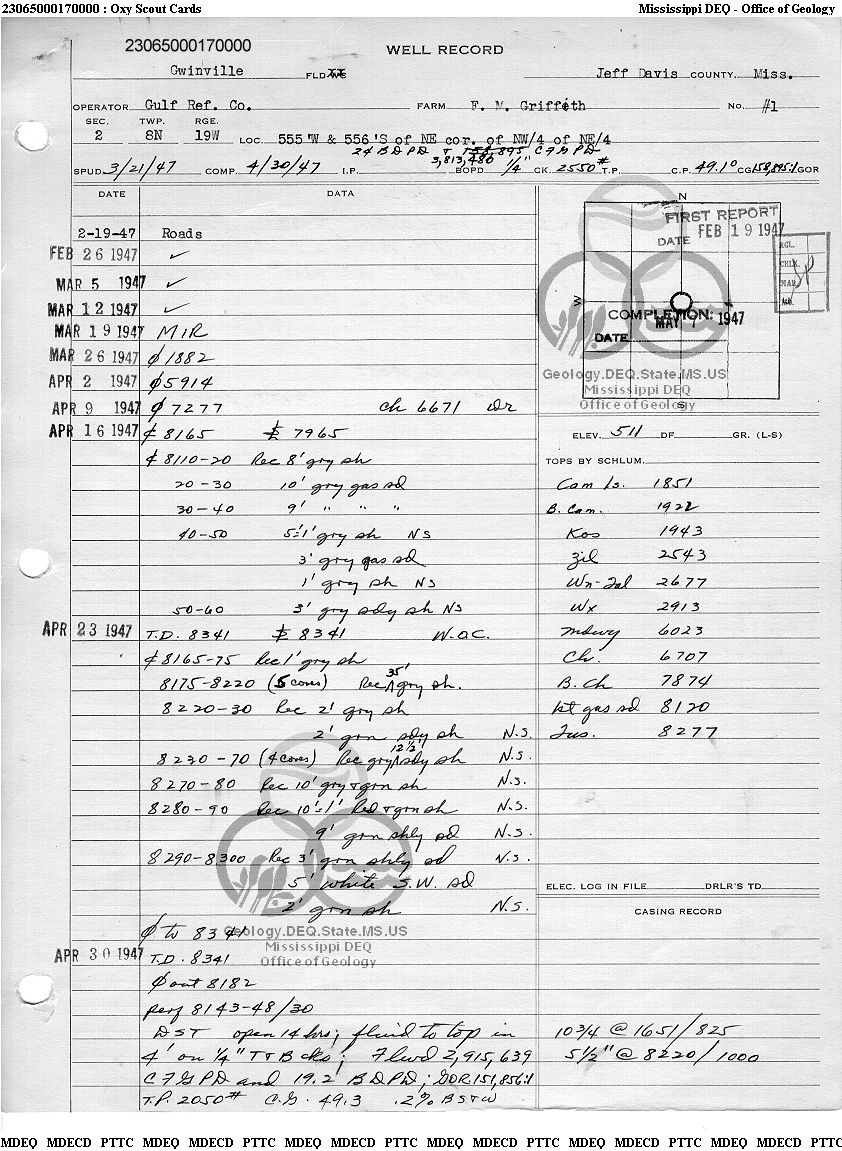 23065000170000 : Oxy Scout Cards
Mississippi DEQ - Office of Geology
23065000170000
WELL RECORD
Gwinville FLD
Jeff Davis COUNTY, Miss.
OPERATOR Gulf Ref. Co. FARM F. M. Griffith No. #1
SEC. TWP. RGE.
2 8N 19W LOC. 555'W & 556'S of NE cor. of NW/4 of NE/4
24 BDPD + CFGPD
3,813,480
SPUD 3/21/47 COMP. 4/30/47 I.P. BOPD 1/4" CK. 2550# T.P. C.P. 49.1° CG 158,895:1 GOR
DATE DATA
2-19-47 Roads
FEB 26 1947 ✓
MAR 5 1947 ✓
MAR 12 1947 ✓
MAR 19 1947 MIR
MAR 26 1947 ∅1882
APR 2 1947 ∅5914
APR 9 1947 ∅7277 Ch 6671 Dr
APR 16 1947 ₵ 8165 7965
₵ 8110-20 Rec 8' gry sh
20-30 10' gry gas sd
30-40 9' " " "
40-50 5'=1' gry sh NS
3' gry gas sd
1' gry sh NS
50-60 3' gry sdy sh NS
APR 23 1947 T.D. 8341 8341 W.O.C.
₵ 8165-75 Rec 1' gry sh
8175-8220 (5 cores) Rec 35' gry sh.
8220-30 Rec 2' gry sh
2' grn sdy sh N.S.
8230-70 (4 cores) Rec gry 12½' sdy sh N.S.
8270-80 Rec 10' gry & grn sh N.S.
8280-90 Rec 10'=1' Red & grn sh N.S.
9' grn shly sd N.S.
8290-8300 Rec 3' grn shly sd N.S.
5' white S.W. sd
2' grn sh N.S.
∅ to 8341
APR 30 1947 T.D. 8341
∅ out 8182
perf 8143-48/30
DST open 14 hrs; fluid to top in
4' on ¼" T & B cks; Flwd 2,915,639
CFGPD and 19.2 BDPD; GOR 151,856:1
T.P. 2050# C.G. 49.3 .2% BS&W
N
FIRST REPORT
DATE FEB 19 1947
RGL.
CHLK.
MAR.
W
COMPLETION:
MAY 7 1947
DATE
S
Geology.DEQ.State.MS.US
Mississippi DEQ
Office of Geology
ELEV. 511 DF. GR. (L-S)
TOPS BY SCHLUM.
Cam ls. 1851
B. Cam. 1922
Kos 1943
Zil 2543
Wn-Tal 2677
Wx 2913
Mdwy 6023
Ch. 6707
B. Ch 7874
1st gas sd 8120
Tus. 8277
ELEC. LOG IN FILE DRLR'S TD
CASING RECORD
10 3/4 @ 1651/825
5 1/2" @ 8220/1000
Geology.DEQ.State.MS.US
Mississippi DEQ
Office of Geology
MDEQ MDECD PTTC MDEQ MDECD PTTC MDEQ MDECD PTTC MDEQ MDECD PTTC MDEQ MDECD PTTC MDEQ MDECD PTTC